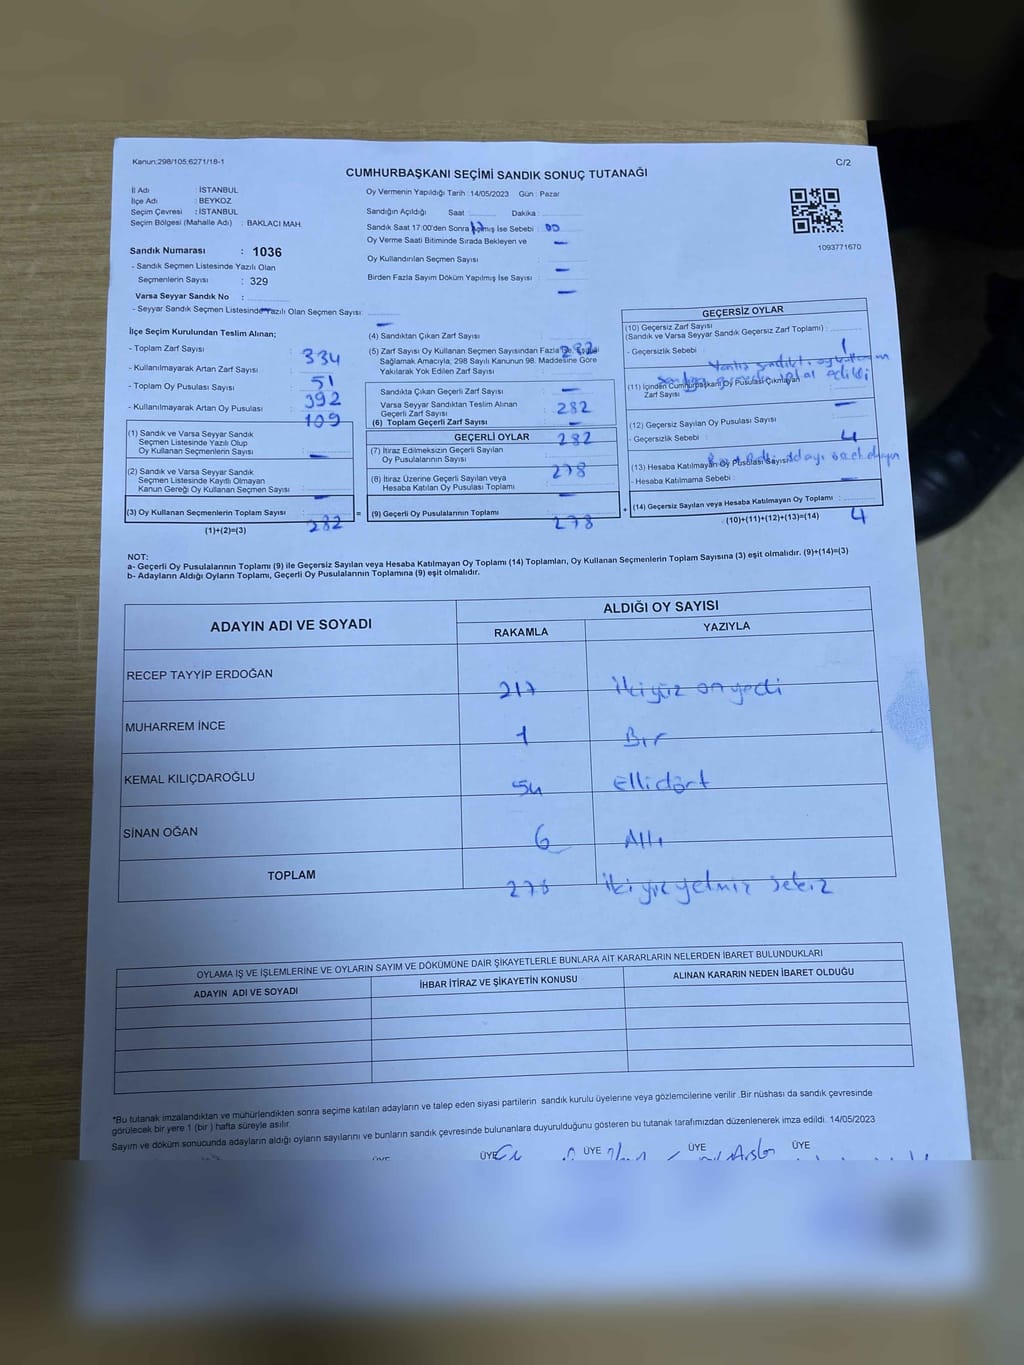 Kanun:298/105;6271/18-1
C/2
CUMHURBAŞKANI SEÇİMİ SANDIK SONUÇ TUTANAĞI
İl Adı : İSTANBUL
İlçe Adı : BEYKOZ
Seçim Çevresi : İSTANBUL
Seçim Bölgesi (Mahalle Adı) : BAKLACI MAH.
Sandık Numarası : 1036
- Sandık Seçmen Listesinde Yazılı Olan
Seçmenlerin Sayısı : 329
Varsa Seyyar Sandık No :
- Seyyar Sandık Seçmen Listesinde Yazılı Olan Seçmen Sayısı:
Oy Vermenin Yapıldığı Tarih :14/05/2023 Gün : Pazar
Sandığın Açıldığı Saat Dakika :
Sandık Saat 17:00'den Sonra Açılmış İse Sebebi : 17 00
Oy Verme Saati Bitiminde Sırada Bekleyen ve
Oy Kullandırılan Seçmen Sayısı :
Birden Fazla Sayım Döküm Yapılmış İse Sayısı :
1093771670
İlçe Seçim Kurulundan Teslim Alınan;
- Toplam Zarf Sayısı : 334
- Kullanılmayarak Artan Zarf Sayısı : 51
- Toplam Oy Pusulası Sayısı : 392
- Kullanılmayarak Artan Oy Pusulası : 109
(1) Sandık ve Varsa Seyyar Sandık
Seçmen Listesinde Yazılı Olup
Oy Kullanan Seçmenlerin Sayısı :
(2) Sandık ve Varsa Seyyar Sandık
Seçmen Listesinde Kayıtlı Olmayan
Kanun Gereği Oy Kullanan Seçmen Sayısı :
(3) Oy Kullanan Seçmenlerin Toplam Sayısı : 282
(1)+(2)=(3)
=
(4) Sandıktan Çıkan Zarf Sayısı : 282
(5) Zarf Sayısı Oy Kullanan Seçmen Sayısından Fazla
Sağlamak Amacıyla, 298 Sayılı Kanunun 98. Maddesine Göre
Yakılarak Yok Edilen Zarf Sayısı :
Sandıkta Çıkan Geçerli Zarf Sayısı : 282
Varsa Seyyar Sandıktan Teslim Alınan
Geçerli Zarf Sayısı :
(6) Toplam Geçerli Zarf Sayısı : 282
GEÇERLİ OYLAR
(7) İtiraz Edilmeksizin Geçerli Sayılan
Oy Pusulalarının Sayısı : 278
(8) İtiraz Üzerine Geçerli Sayılan veya
Hesaba Katılan Oy Pusulası Toplamı :
(9) Geçerli Oy Pusulalarının Toplamı : 278
+
GEÇERSİZ OYLAR
(10) Geçersiz Zarf Sayısı
(Sandık ve Varsa Seyyar Sandık Geçersiz Zarf Toplamı) : 1
- Geçersizlik Sebebi :
(11) İçinden Cumhurbaşkanı Oy Pusulası Çıkmayan
Zarf Sayısı :
(12) Geçersiz Sayılan Oy Pusulası Sayısı : 4
- Geçersizlik Sebebi :
(13) Hesaba Katılmayan Oy Pusulası Sayısı :
- Hesaba Katılmama Sebebi :
(14) Geçersiz Sayılan veya Hesaba Katılmayan Oy Toplamı : 4
(10)+(11)+(12)+(13)=(14)
NOT:
a- Geçerli Oy Pusulalarının Toplamı (9) ile Geçersiz Sayılan veya Hesaba Katılmayan Oy Toplamı (14) Toplamları, Oy Kullanan Seçmenlerin Toplam Sayısına (3) eşit olmalıdır. (9)+(14)=(3)
b- Adayların Aldığı Oyların Toplamı, Geçerli Oy Pusulalarının Toplamına (9) eşit olmalıdır.
ADAYIN ADI VE SOYADI
ALDIĞI OY SAYISI
RAKAMLA YAZIYLA
RECEP TAYYİP ERDOĞAN 217 İkiyüz onyedi
MUHARREM İNCE 1 Bir
KEMAL KILIÇDAROĞLU 54 Ellidört
SİNAN OĞAN 6 Altı
TOPLAM 278 İkiyüzyetmiş sekiz
OYLAMA İŞ VE İŞLEMLERİNE VE OYLARIN SAYIM VE DÖKÜMÜNE DAİR ŞİKAYETLERLE BUNLARA AİT KARARLARIN NELERDEN İBARET BULUNDUKLARI
ADAYIN ADI VE SOYADI İHBAR İTİRAZ VE ŞİKAYETİN KONUSU ALINAN KARARIN NEDEN İBARET OLDUĞU
*Bu tutanak imzalandıktan ve mühürlendikten sonra seçime katılan adayların ve talep eden siyasi partilerin sandık kurulu üyelerine veya gözlemcilerine verilir .Bir nüshası da sandık çevresinde
görülecek bir yere 1 (bir ) hafta süreyle asılır.
Sayım ve döküm sonucunda adayların aldığı oyların sayılarını ve bunların sandık çevresinde bulunanlara duyurulduğunu gösteren bu tutanak tarafımızdan düzenlenerek imza edildi. 14/05/2023
ÜYE ÜYE ÜYE ÜYE ÜYE